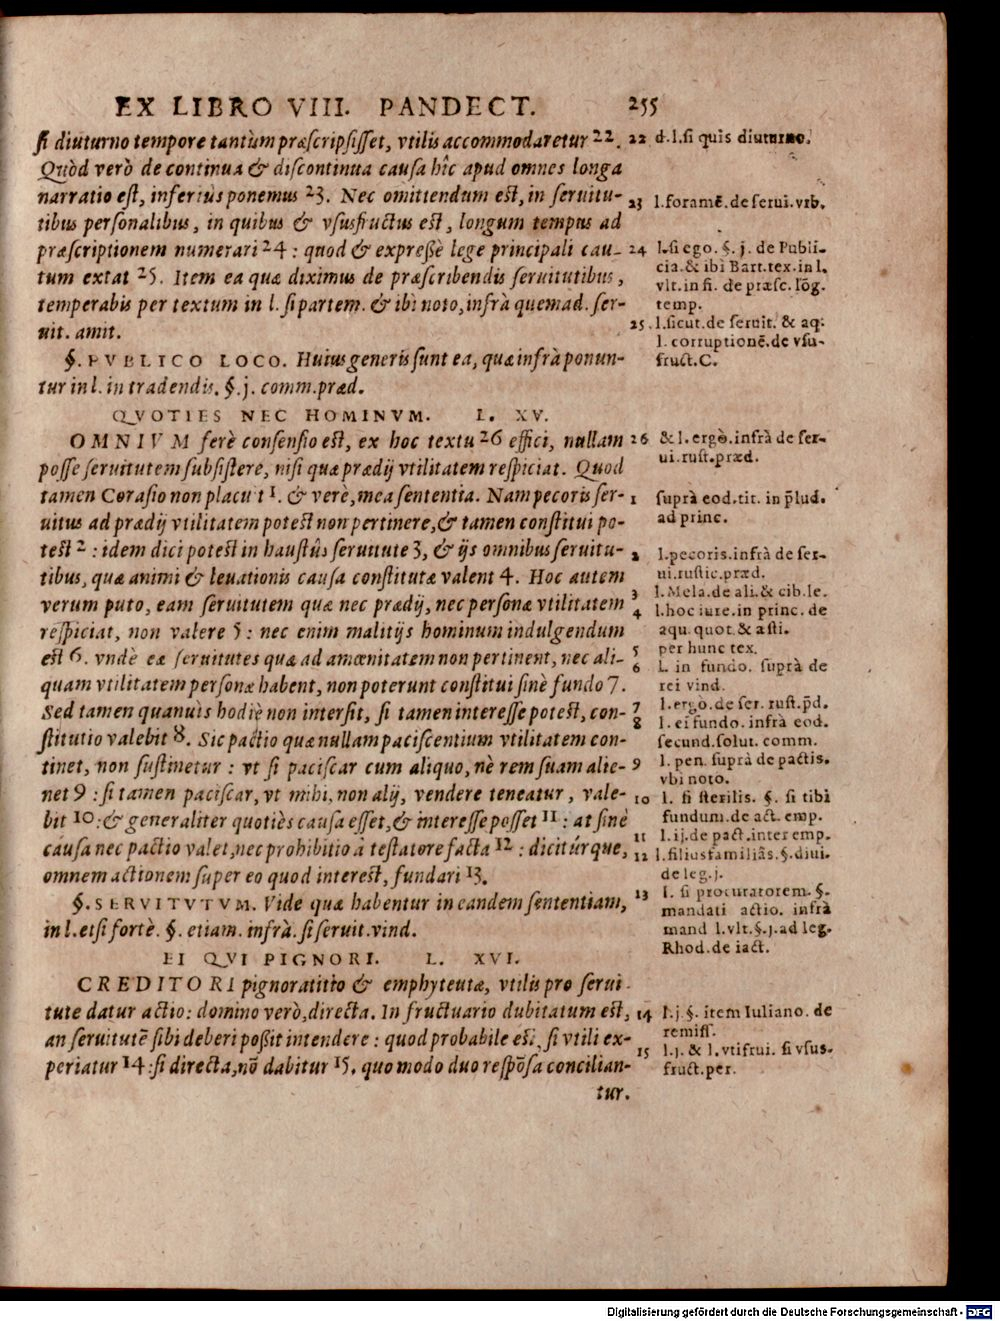 EX LIBRO VIII. PANDECT. 255
ſi diuturno tempore tantùm præſcripſiſſet, vtilis accommodaretur 22.
Quòd verò de continua & diſcontinua cauſa hîc apud omnes longa
narratio eſt, inferiùs ponemus 23. Nec omittendum eſt, in ſeruitu-
tibus perſonalibus, in quibus & vſusfructus eſt, longum tempus ad
præſcriptionem numerari 24 : quod & expreſsè lege principali cau-
tum extat 25. Item ea quæ diximus de præſcribendis ſeruitutibus,
temperabis per textum in l. ſi partem. & ibi noto, infrà quemad. ſer-
uit. amit.
§. PVBLICO LOCO. Huius generis ſunt ea, quæ infrà ponun-
tur in l. in tradendis. §. j. comm. præd.
QVOTIES NEC HOMINVM. L. XV.
OMNIVM ferè conſenſio eſt, ex hoc textu 26 effici, nullam
poſſe ſeruitutem ſubſiſtere, niſi quæ prædij vtilitatem reſpiciat. Quod
tamen Coraſio non placuit 1. & verè, mea ſententia. Nam pecoris ſer-
uitus ad prædij vtilitatem poteſt non pertinere, & tamen conſtitui po-
teſt 2 : idem dici poteſt in hauſtûs ſeruitute 3, & ijs omnibus ſeruitu-
tibus, quæ animi & leuationis cauſa conſtitutæ valent 4. Hoc autem
verum puto, eam ſeruitutem quæ nec prædij, nec perſonæ vtilitatem
reſpiciat, non valere 5 : nec enim malitijs hominum indulgendum
eſt 6. vndè eæ ſeruitutes quæ ad amœnitatem non pertinent, nec ali-
quam vtilitatem perſonæ habent, non poterunt conſtitui ſinè fundo 7.
Sed tamen quanuis hodiè non interſit, ſi tamen intereſſe poteſt, con-
ſtitutio valebit 8. Sic pactio quæ nullam paciſcentium vtilitatem con-
tinet, non ſuſtinetur : vt ſi paciſcar cum aliquo, nè rem ſuam alie-
net 9 : ſi tamen paciſcar, vt mihi, non alij, vendere teneatur, vale-
bit 10 : & generaliter quotiès cauſa eſſet, & intereſſe poſſet 11 : at ſinè
cauſa nec pactio valet, nec prohibitio à teſtatore facta 12 : dicitúrque,
omnem actionem ſuper eo quod intereſt, fundari 13.
§. SERVITVTVM. Vide quæ habentur in eandem ſententiam,
in l. etſi fortè. §. etiam. infrà. ſi ſeruit. vind.
EI QVI PIGNORI. L. XVI.
CREDITORI pignoratitio & emphyteutæ, vtilis pro ſerui-
tute datur actio : domino verò, directa. In fructuario dubitatum eſt,
an ſeruitutẽ ſibi deberi poßit intendere : quod probabile eſt, ſi vtili ex-
periatur 14 : ſi directa, nõ dabitur 15. quo modo duo reſpõſa concilian-
tur.
22 d. l. ſi quis diuturno.
23 l. foramẽ. de ſerui. vrb.
24 l. ſi ego. §. j. de Publi-
cia. & ibi Bart. tex. in l.
vlt. in fi. de præſc. lõg.
temp.
25. l. ſicut. de ſeruit. & aq.
l. corruptionẽ. de vſu-
fruct. C.
26 & l. ergò. infrà de ſer-
ui. ruſt. præd.
1 ſuprà eod. tit. in p̃lud.
ad princ.
2 l. pecoris. infrà de ſer-
ui. ruſtic. præd.
3 l. Mela. de ali. & cib. le.
4 l. hoc iure. in princ. de
aqu. quot. & æſti.
5 per hunc tex.
6 l. in fundo. ſuprà de
rei vind.
7 l. ergò. de ſer. ruſt. p̃d.
8 l. ei fundo. infrà eod.
ſecund. ſolut. comm.
9 l. pen. ſuprà de pactis.
vbi noto.
10 l. ſi ſterilis. §. ſi tibi
fundum. de act. emp.
11 l. ij. de pact. inter emp.
12 l. filiusfamiliâs. §. diui.
de leg. j.
13 l. ſi procuratorem. §.
mandati actio. infrà
mand l. vlt. §. j. ad leg.
Rhod. de iact.
14 l. j. §. item Iuliano. de
remiſſ.
15 l. j. & l. vtifrui. ſi vſus-
fruct. per.
Digitalisierung gefördert durch die Deutsche Forschungsgemeinschaft - DFG